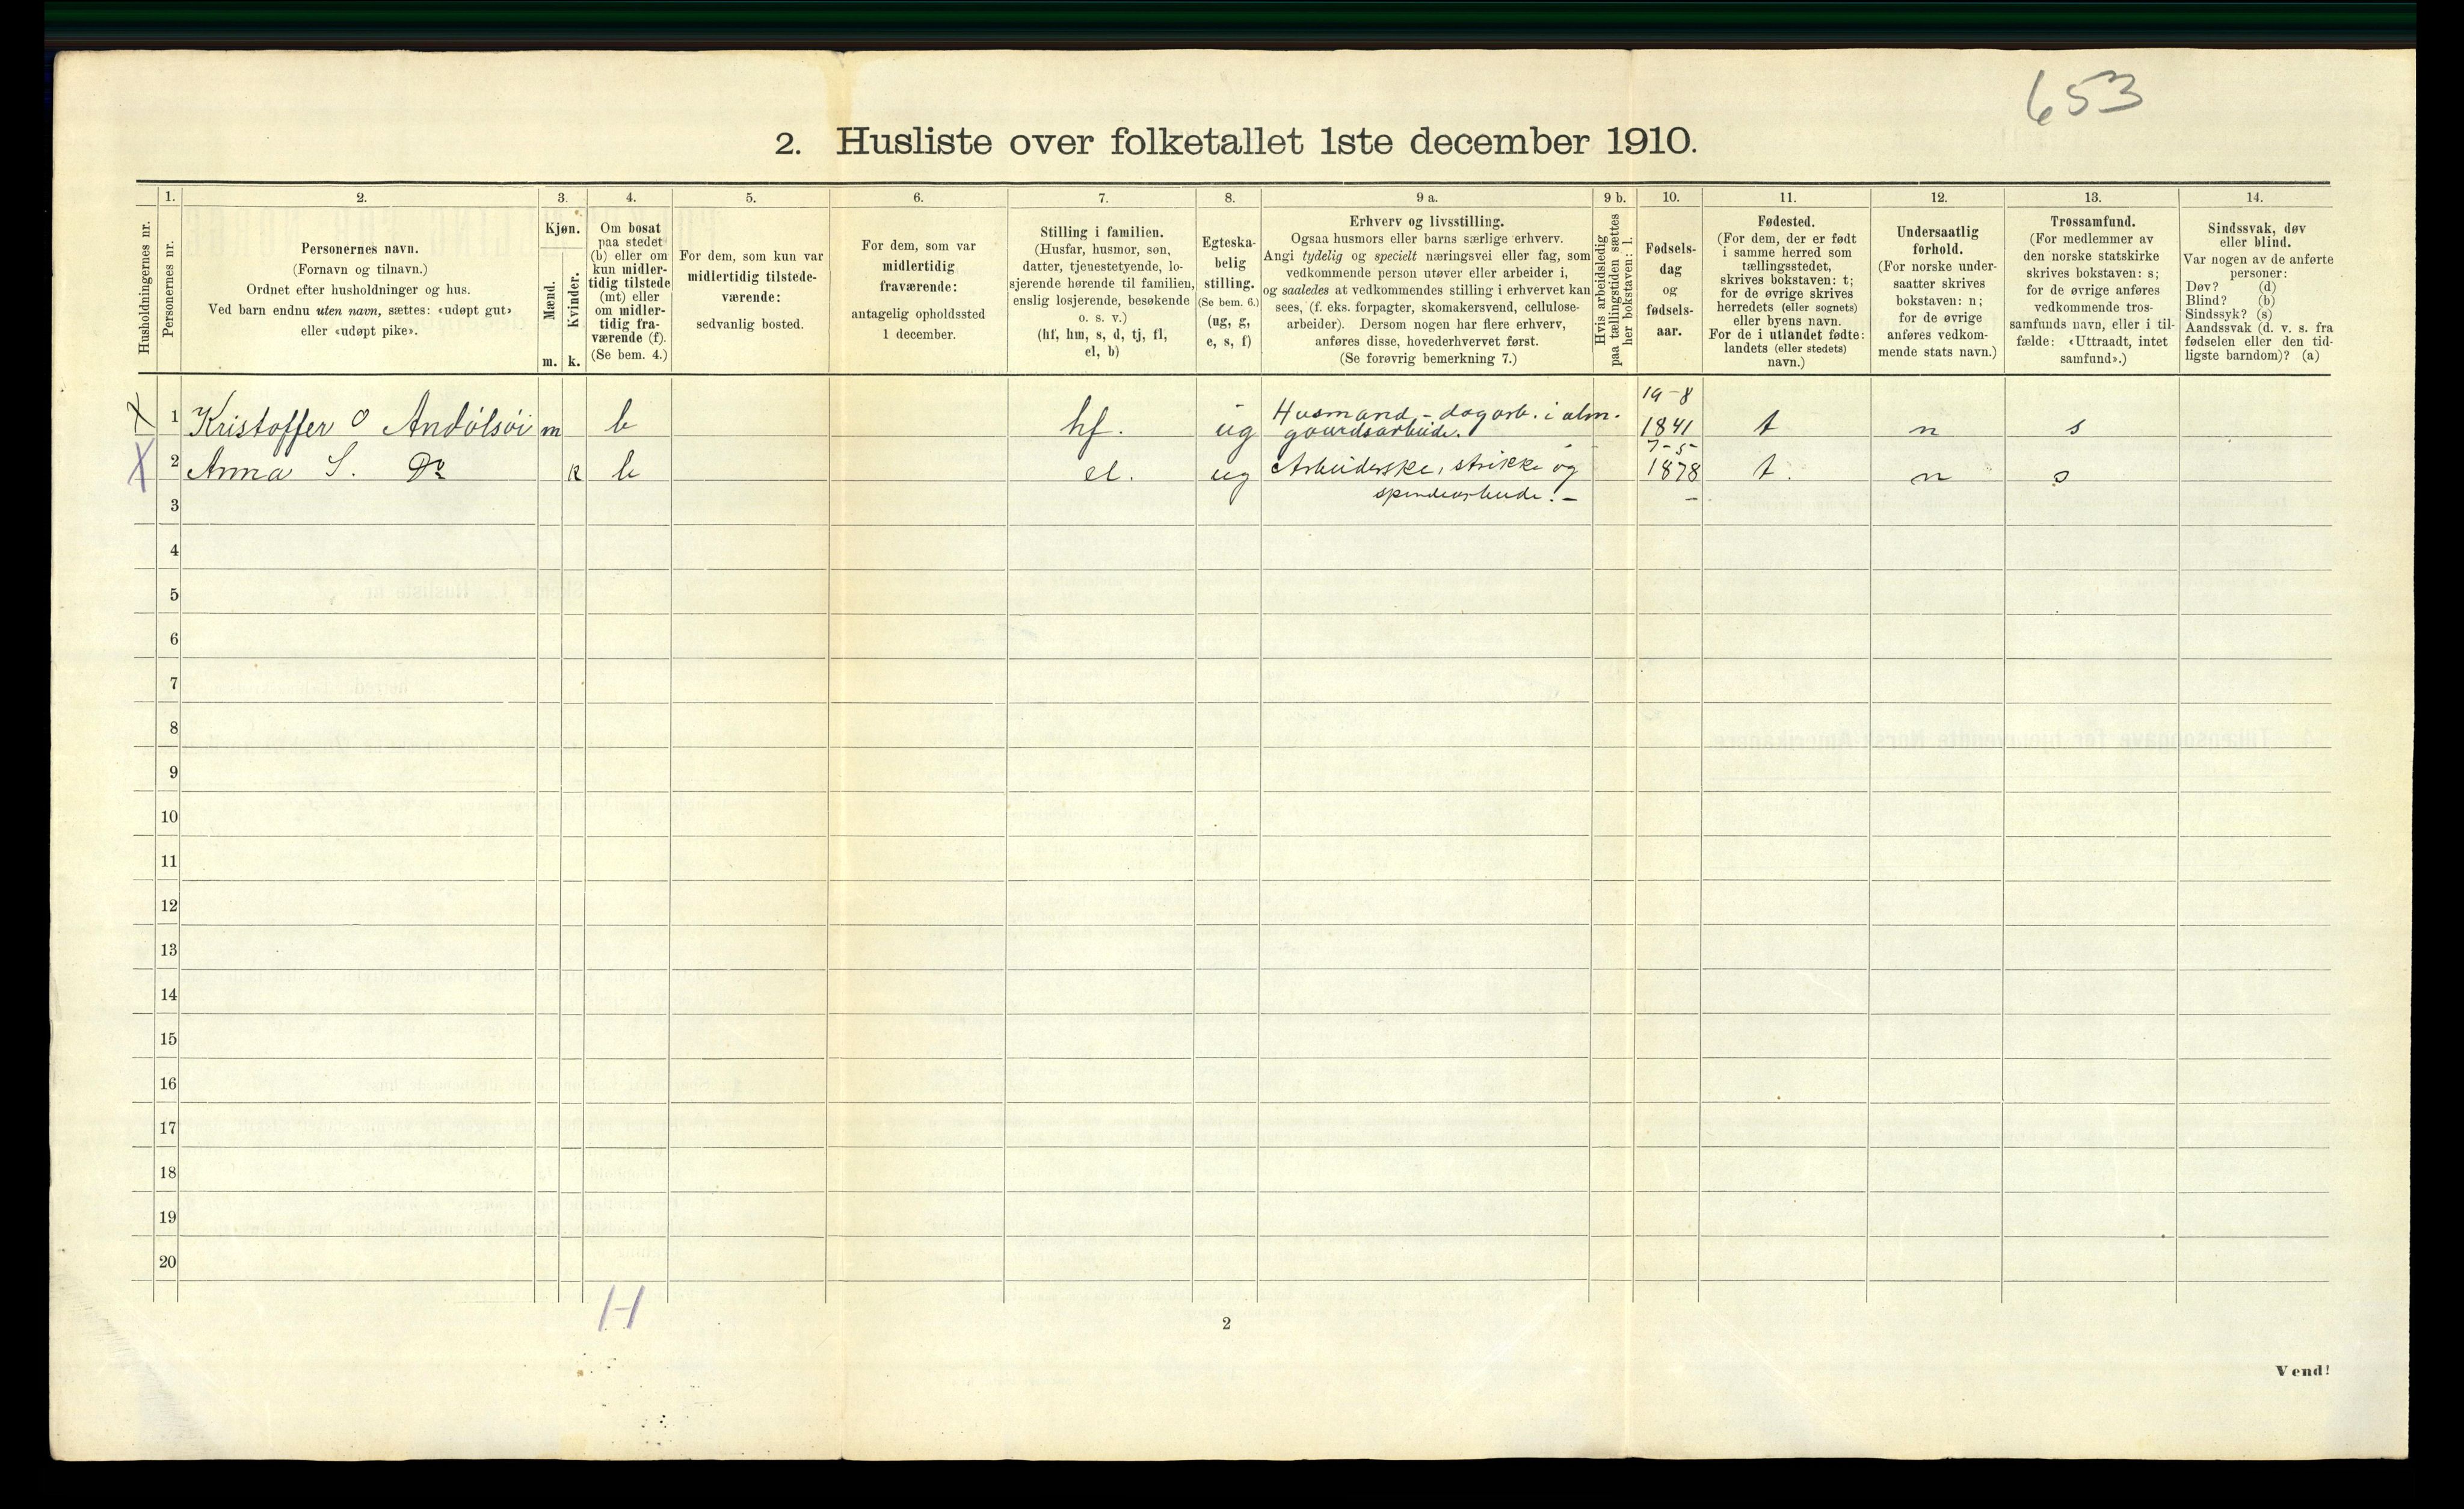 653
2. Husliste over folketallet 1ste december 1910.
Husholdningernes nr.
1.
Personernes nr.
2.
Personernes navn.
(Fornavn og tilnavn.)
Ordnet efter husholdninger og hus.
Ved barn endnu uten navn, sættes: «udøpt gut»
eller «udøpt pike».
3.
Kjøn.
Mænd.
m.
Kvinder.
k.
4.
Om bosat
paa stedet
(b) eller om
kun midler-
tidig tilstede
(mt) eller
om midler-
tidig fra-
værende (f).
(Se bem. 4.)
5.
For dem, som kun var
midlertidig tilstede-
værende:
sedvanlig bosted.
6.
For dem, som var
midlertidig
fraværende:
antagelig opholdssted
1 december.
7.
Stilling i familien.
(Husfar, husmor, søn,
datter, tjenestetyende, lo-
sjerende hørende til familien,
enslig losjerende, besøkende
o. s. v.)
(hf, hm, s, d, tj, fl,
el, b)
8.
Egteska-
belig
stilling.
(Se bem. 6.)
(ug, g,
e, s, f)
9 a.
Erhverv og livsstilling.
Ogsaa husmors eller barns særlige erhverv.
Angi tydelig og specielt næringsvei eller fag, som
vedkommende person utøver eller arbeider i,
og saaledes at vedkommendes stilling i erhvervet kan
sees, (f. eks. forpagter, skomakersvend, cellulose-
arbeider). Dersom nogen har flere erhverv,
anføres disse, hovederhvervet først.
(Se forøvrig bemerkning 7.)
9 b.
Hvis arbeidsledig
paa tællingstiden sættes
her bokstaven: l.
10.
Fødsels-
dag
og
fødsels-
aar.
11.
Fødested.
(For dem, der er født
i samme herred som
tællingsstedet,
skrives bokstaven: t;
for de øvrige skrives
herredets (eller sognets)
eller byens navn.
For de i utlandet fødte:
landets (eller stedets)
navn.)
12.
Undersaatlig
forhold.
(For norske under-
saatter skrives
bokstaven: n;
for de øvrige
anføres vedkom-
mende stats navn.)
13.
Trossamfund.
(For medlemmer av
den norske statskirke
skrives bokstaven: s;
for de øvrige anføres
vedkommende tros-
samfunds navn, eller i til-
fælde: «Uttraadt, intet
samfund».)
14.
Sindssvak, døv
eller blind.
Var nogen av de anførte
personer:
Døv? (d)
Blind? (b)
Sindssyk? (s)
Aandssvak (d. v. s. fra
fødselen eller den tid-
ligste barndom)? (a)
X 1 Kristoffer O Andólsói m b hf. ug Husmand - dagarb. i alm. 19-8 1841 t n s
gaardsarbeide.
X 2 Anna S. Do k b el. ug Arbeiderske, strikke og 7-5- 1878 t. n s
spindearbeide. -
3
4
5
6
7
8
9
10
11
12
13
14
15
16
17
18
19
20
H
2
Vend!